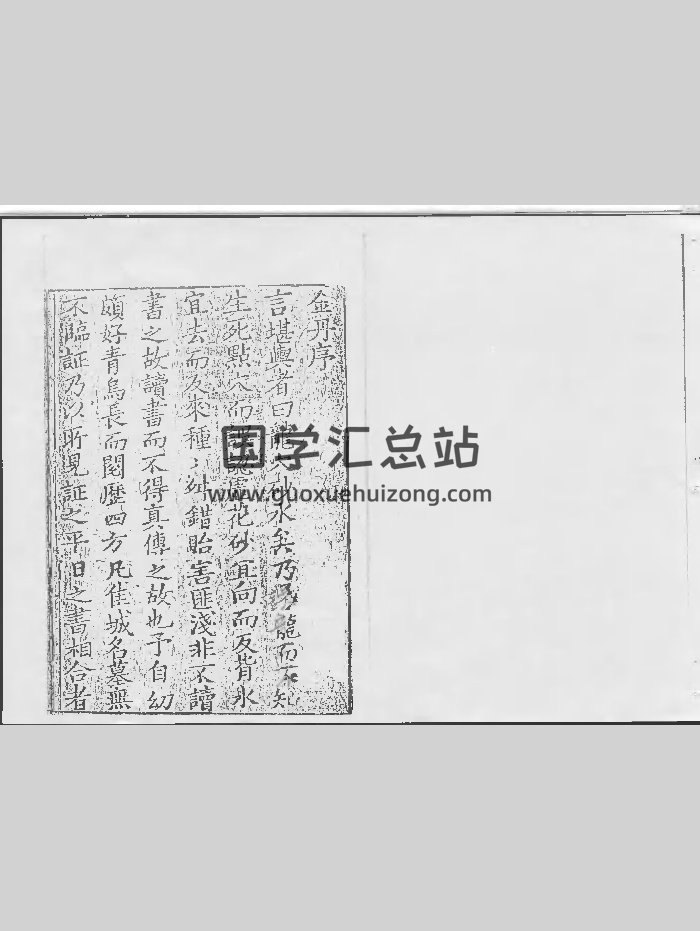 金丹序
言堪輿者曰龍穴砂水矣乃尋龍而不知
生死點穴而誤認虛花砂宜向而反背水
宜去而反來種〻舛錯貽害匪淺非不讀
書之故讀書而不得真傳之故也予自幼
頗好青烏長而閱歷四方凡佳城名墓無
不臨証乃以所見証之平日之書相合者
国学汇总站
www.guoxuehuizong.com